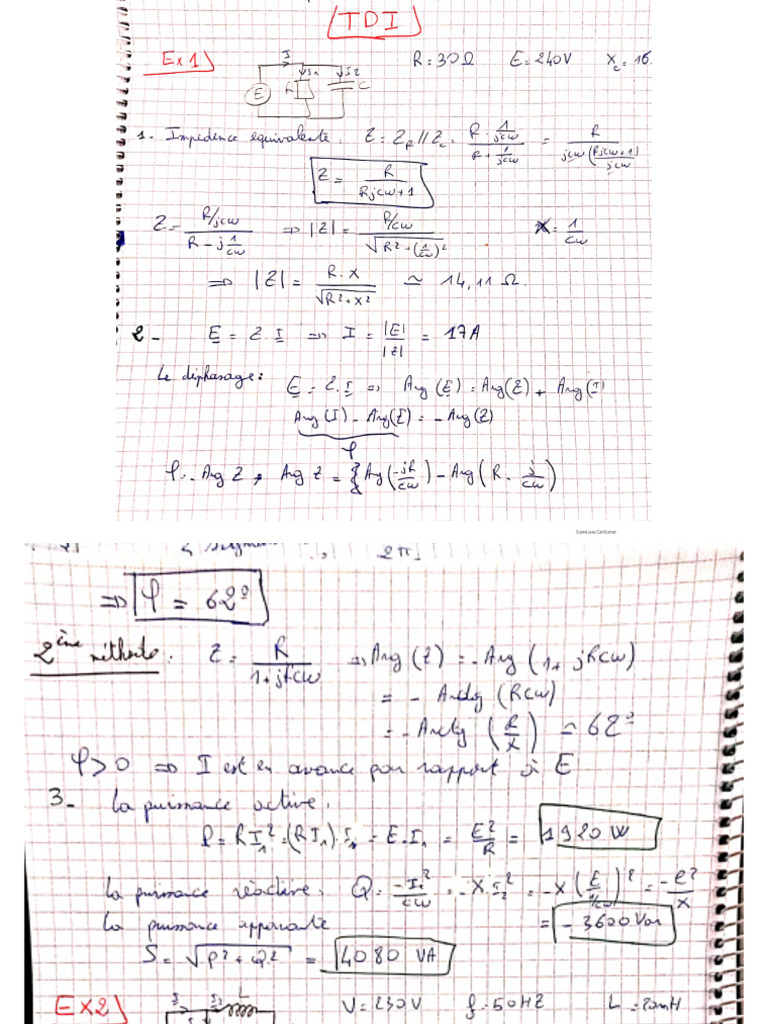 TDI
Ex1) R = 30Ω E = 240V Xc = 16.
I I1 I2 E R C
1. Impédence équivalente. Z = Z_R // Z_C = (R · 1/jcω)/(R + 1/jcω) = R/(jcω((Rjcω+1)/jcω))
Z = R/(Rjcω+1)
Z = (R/jcω)/(R - j 1/cω) ⇒ |Z| = (R/cω)/√(R² + (1/cω)²) X = 1/cω
⇒ |Z| = R.X/√(R² + X²) ≃ 14,11 Ω.
2 - E = Z.I ⇒ I = |E|/|Z| = 17A
Le déphasage: E = Z.I ⇒ Arg(E) = Arg(Z) + Arg(I)
Arg(I) - Arg(E) = - Arg(Z)
φ
φ = - Arg Z, Arg Z = { Arg(-jR/cω) - Arg(R - j/cω)
Scanné avec CamScanner
2π.
⇒ φ = 62°
2ème méthode: Z = R/(1+jRcω) ⇒ Arg(Z) = - Arg(1 + jRcω)
= - Arctg(Rcω)
= - Arctg(R/X) ≃ 62°
φ > 0 ⇒ I est en avance par rapport à E
3 - La puissance active.
P = R I1² = (R I1).I1 = E.I1 = E²/R = 1920 W
La puissance réactive. Q = -I2²/cω = -X.I2² = -X(E/(1/cω))² = -E²/X
La puissance apparente = - 3600 Var
S = √(P² + Q²) = 4080 VA
EX2) L V = 230V f = 50HZ L = 20mH